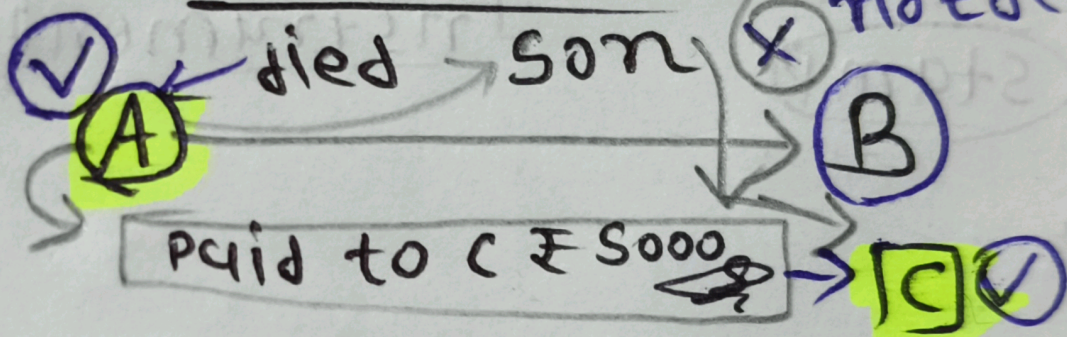 died son X
A B
paid to C ₹ 5000
C